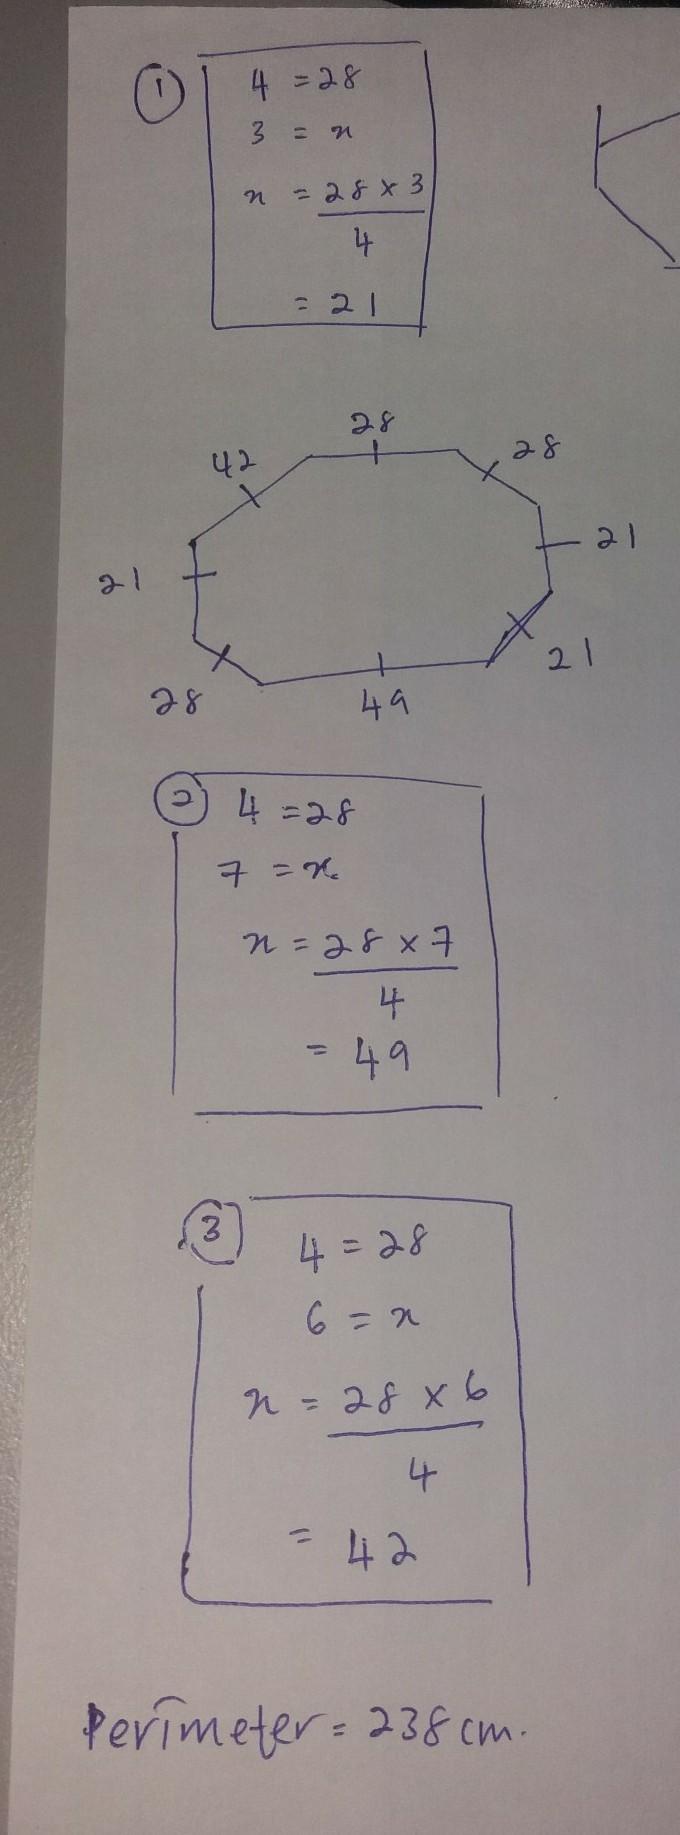 ① 4 = 28
3 = x
x = 28 × 3
4
= 21
28
42
28
21
21
21
28
49
② 4 = 28
7 = x
x = 28 × 7
4
= 49
③ 4 = 28
6 = x
x = 28 × 6
4
= 42
Perimeter = 238 cm.